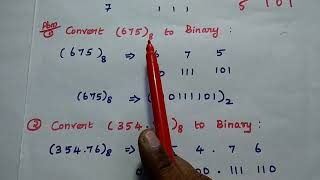 7 1 1 1 5 1 0 1
Pbm
① Convert (675)₈ to Binary :
(675)₈ ⇒ 6 7 5
0 111 101
(675)₈ ⇒ ( 0111101)₂
② Convert (354. )₈ to Binary :
(354.76)₈ ⇒ 5 4 . 7 6
00 . 111 110